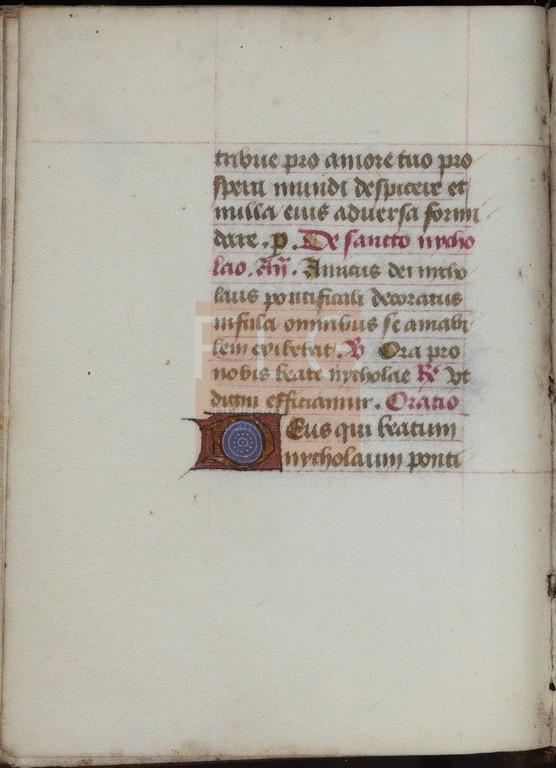 tribue pro amore tuo pro
spera mundi despicere et
nulla eius adversa formi
dare. p. De sancto nycho
lao. Añ. Amicus dei nicho
laus pontificali decoratus
infula omnibus se amabi
lem exibebat. V Ora pro
nobis beate nycholae R Vt
digni efficiamur. Oratio
Deus qui beatum
nycholaum ponti